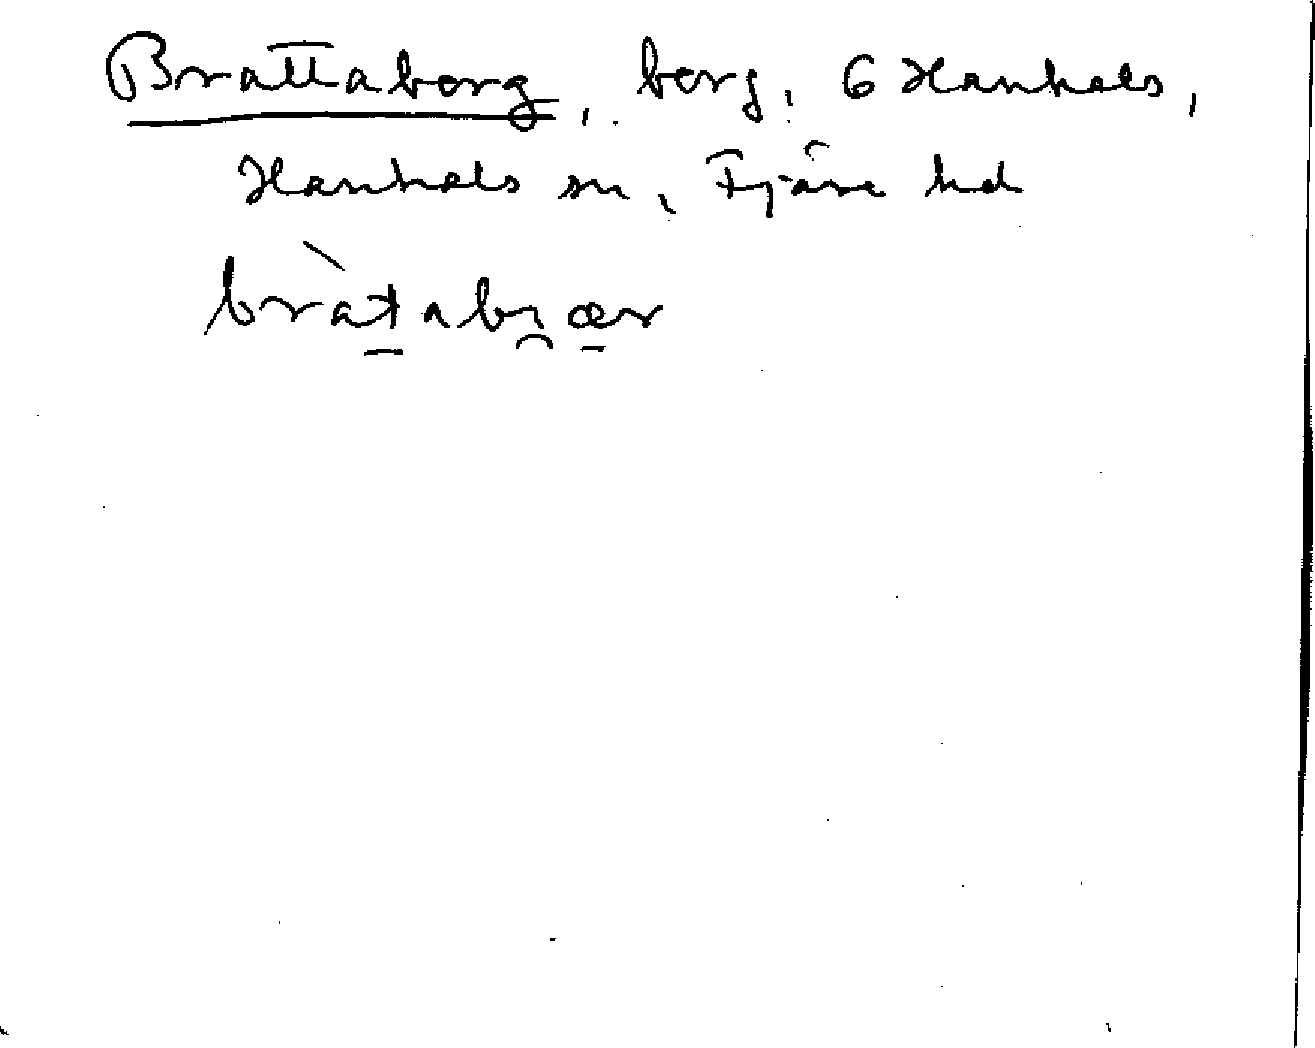 Brattaberg, berg, 6 Hanhals,
Hanhals sn, Fjäre hd
bràtabı̯ær